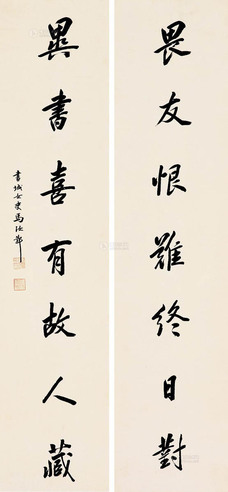 畏友恨難終日對
異書喜有故人藏
書城女史馮